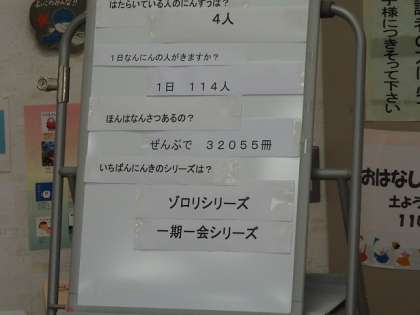 はたらいている人のにんずうは？
4人
1日なんにんの人がきますか？
1日 114人
ほんはなんさつあるの？
ぜんぶで 32055冊
いちばんにんきのシリーズは？
ゾロリシリーズ
一期一会シリーズ
子様につきそって下さい
おはなし
土よう